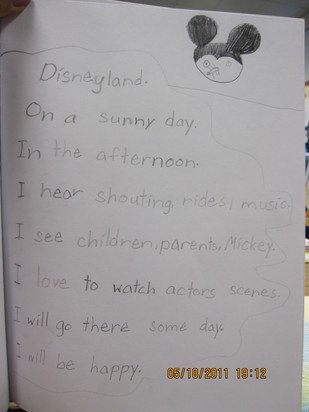 Disneyland.
On a sunny day.
In the afternoon.
I hear shouting, rides, music.
I see children, parents, Mickey.
I love to watch actors scenes.
I will go there some day.
I will be happy.
05/10/2011 19:12